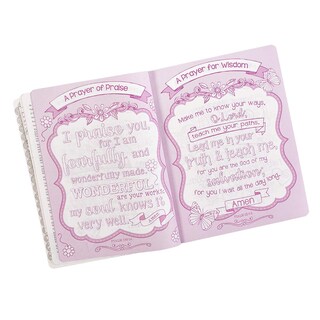 A Prayer of Praise
I praise you,
for I am
fearfully and
wonderfully made.
WONDERFUL
are your works;
my soul knows it
very well.
A Prayer for Wisdom
Make me to know your ways,
O Lord;
teach me your paths.
Lead me in your
truth & teach me,
for you are the God of my
salvation;
for you I wait all the day long.
Amen